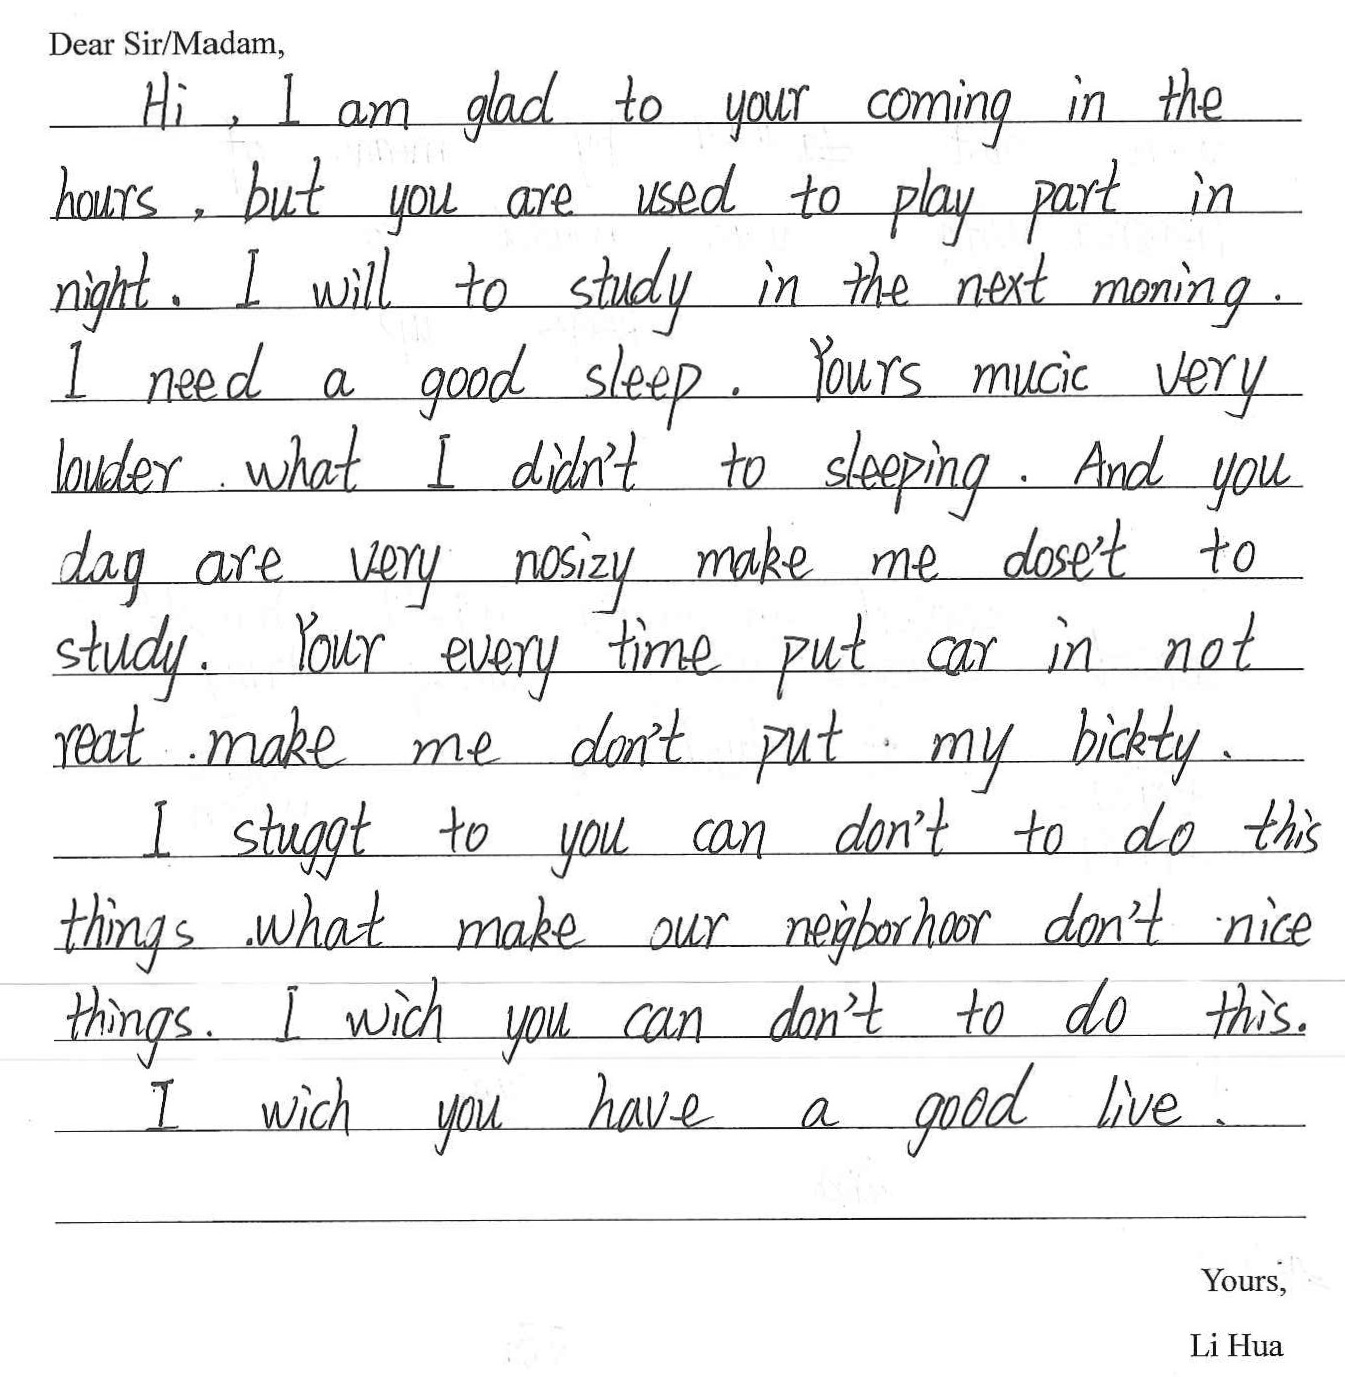 Dear Sir/Madam,
Hi, I am glad to your coming in the
hours, but you are used to play part in
night. I will to study in the next moning.
I need a good sleep. Yours mucic very
louder. what I didn't to sleeping. And you
dag are very nosizy make me dose't to
study. Your every time put car in not
reat. make me don't put. my bickty.
I stuggt to you can don't to do this
things. what make our neigborhoor don't nice
things. I wich you can don't to do this.
I wich you have a good live.
Yours,
Li Hua